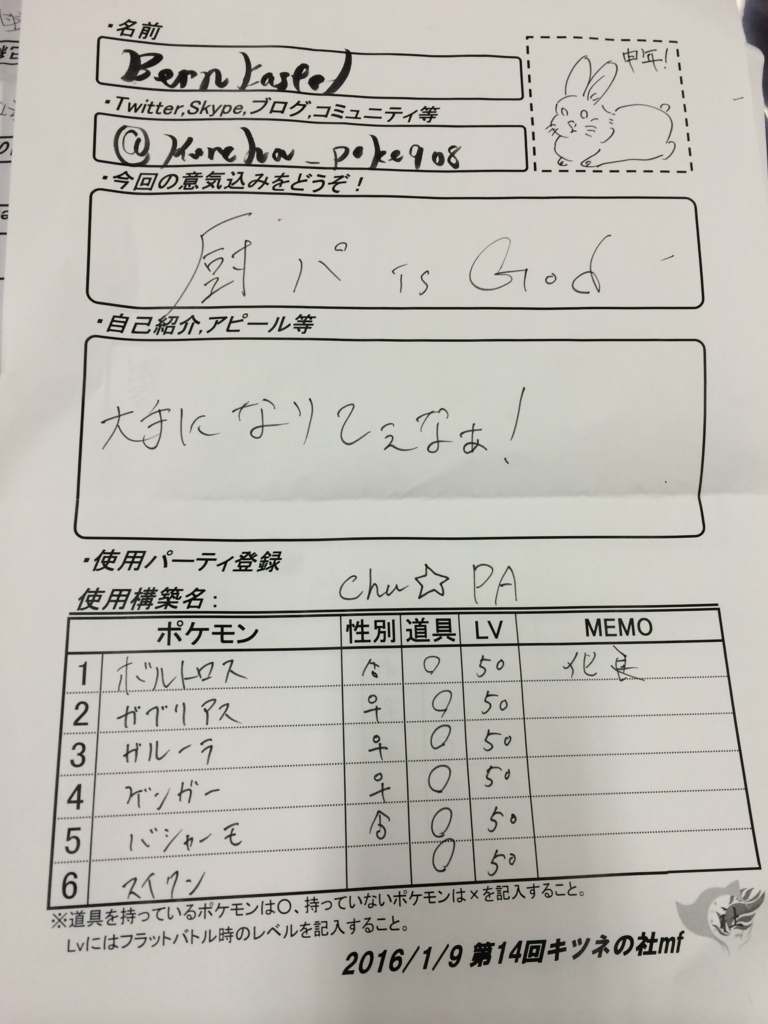 ・名前
Bernkastel
申年!
・Twitter,Skype,ブログ,コミュニティ等
@Korecha_poke908
・今回の意気込みをどうぞ!
厨パ is God
・自己紹介,アピール等
大手になりてえなぁ!
・使用パーティ登録
使用構築名: Chu☆PA
ポケモン 性別 道具 LV MEMO
1 ボルトロス ♂ ○ 50 化身
2 ガブリアス ♀ ○ 50
3 ガルーラ ♀ ○ 50
4 ゲンガー ♀ ○ 50
5 バシャーモ ♂ ○ 50
6 スイクン ○ 50
※道具を持っているポケモンは○、持っていないポケモンは×を記入すること。
Lvにはフラットバトル時のレベルを記入すること。
2016/1/9 第14回キツネの社mf